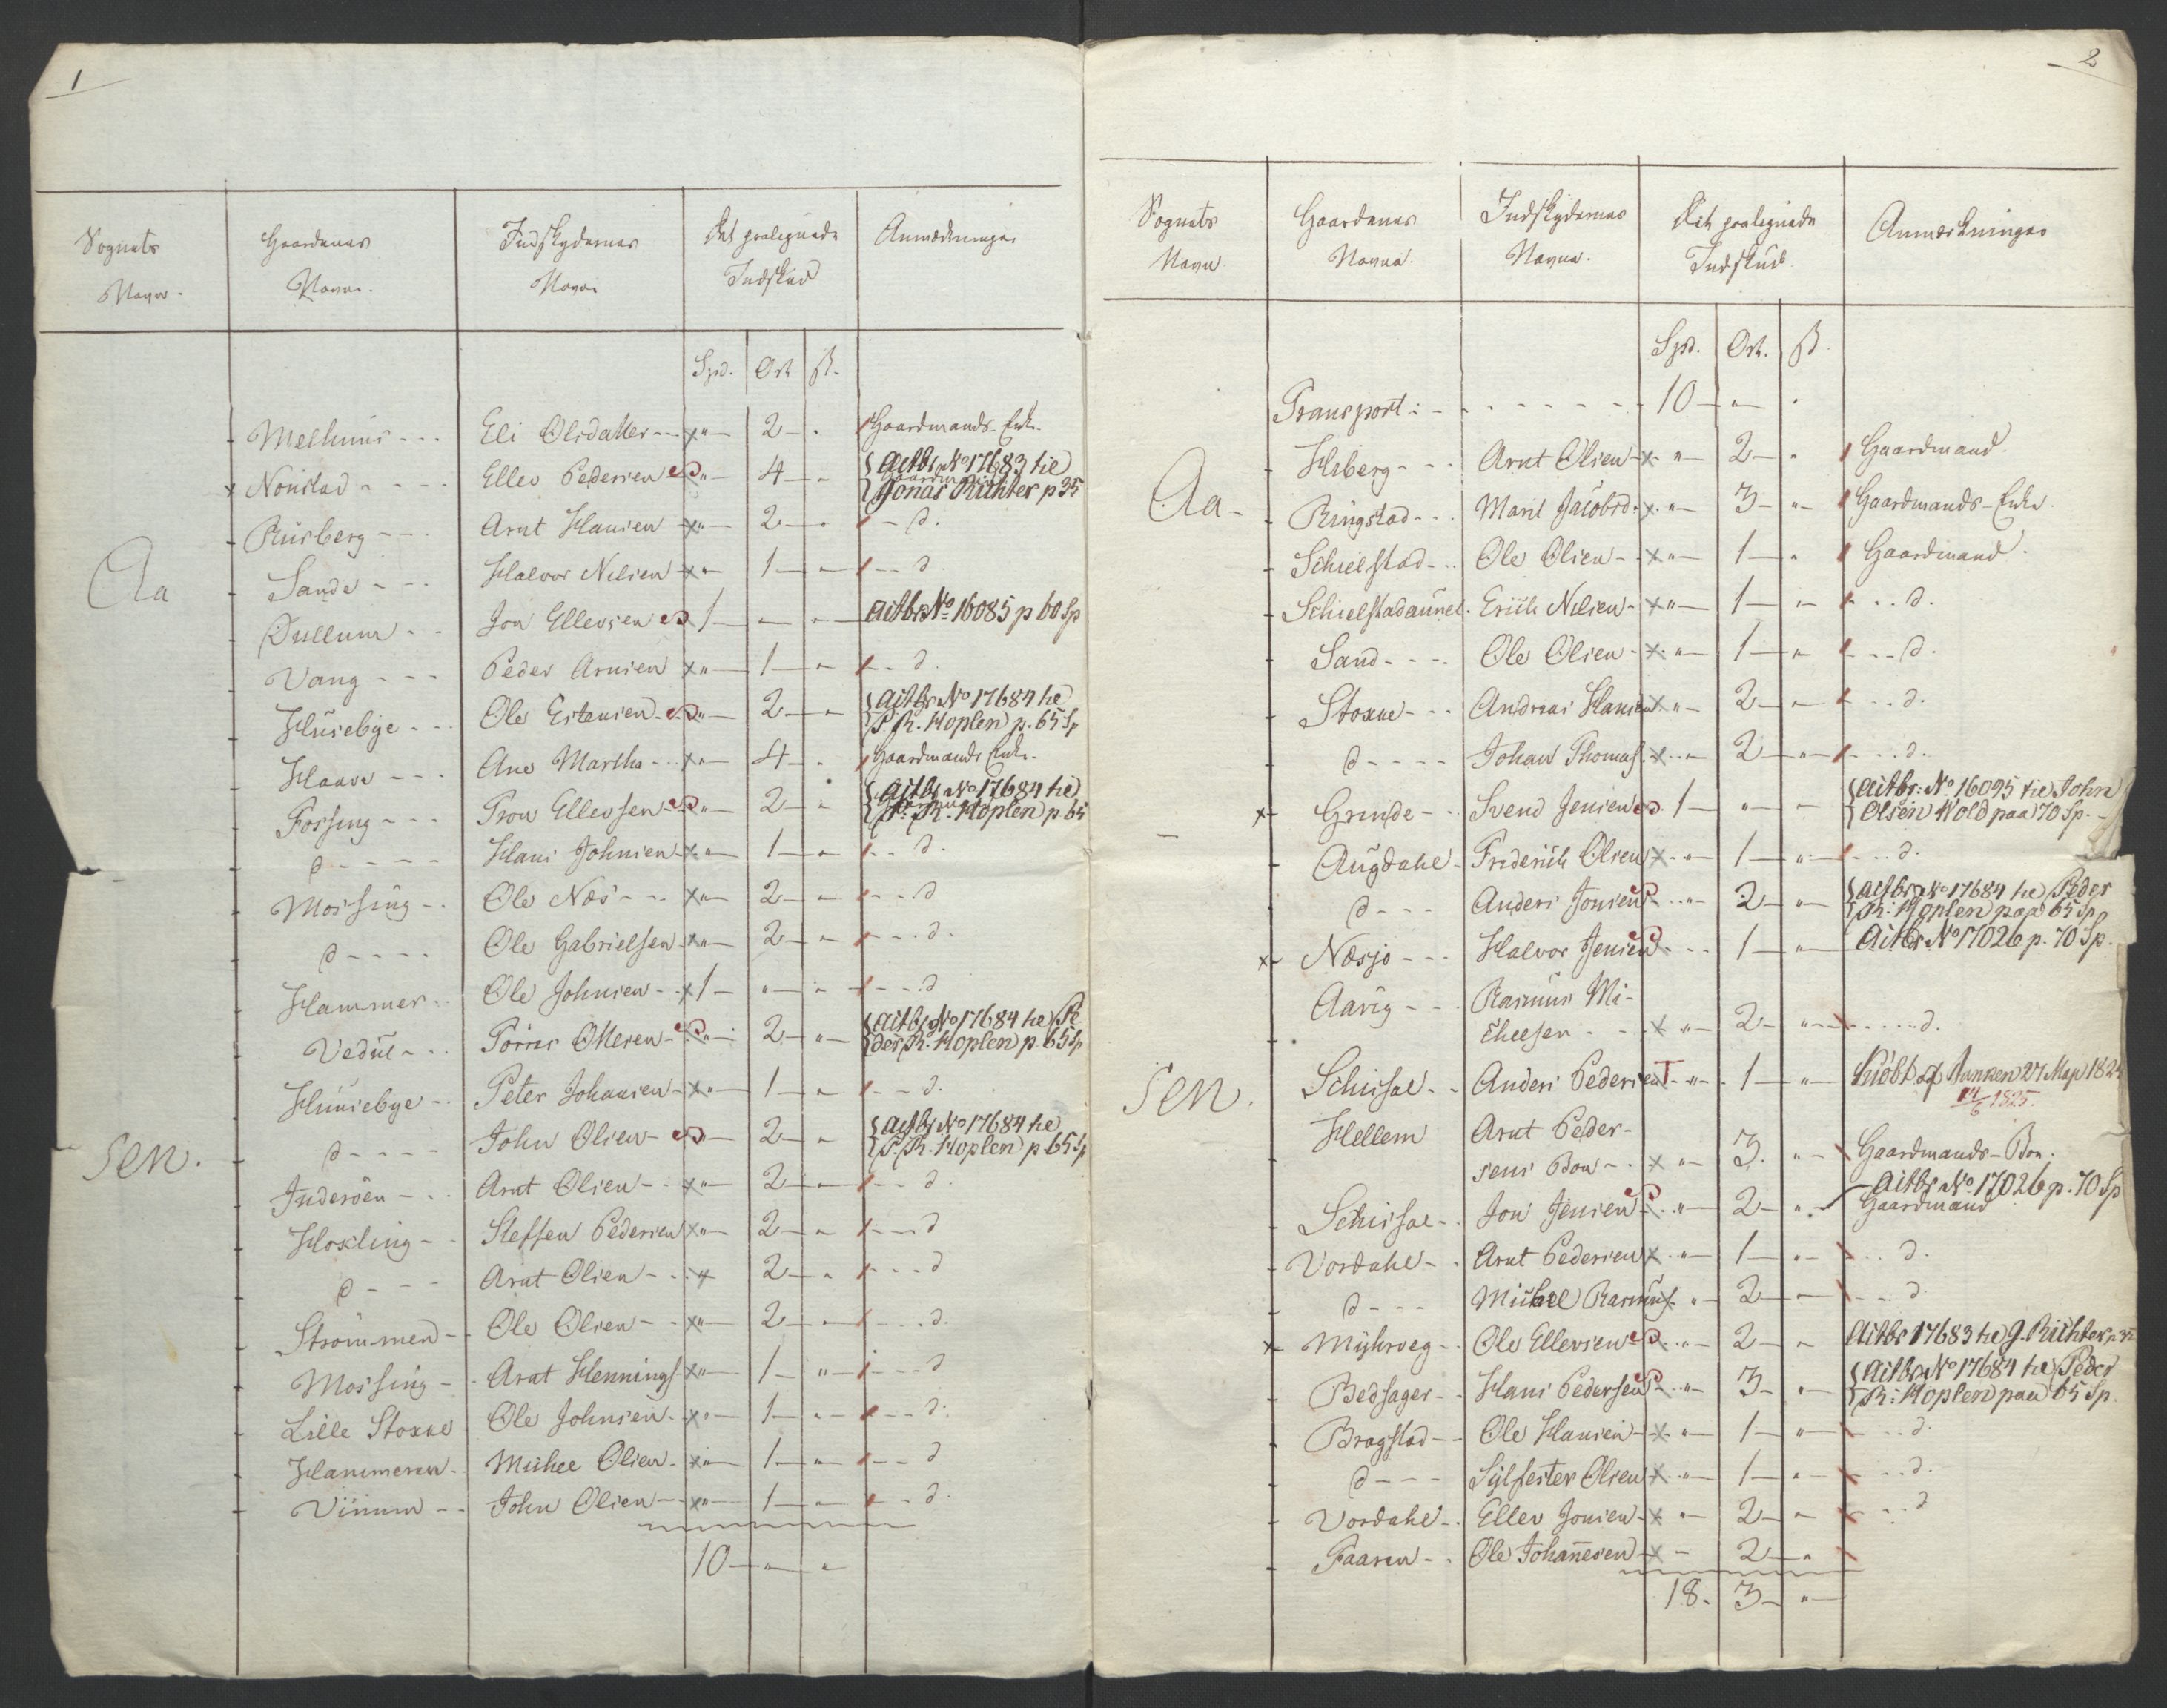 1
Sognets Navn. Gaardenes Navne. Indskydernes Navne Det paalignede Indskud Anmærkninger
Spd. Ort ß.
Aa
Melhuus - - - Eli Olsdatter - - x " - 2 - " Gaardmands-Enke.
x Nonstad - - - - Ellev Pedersen " - 4 - " Actbr. No 17683 til
Jonas Richter p 35
Ruusberg - - - Arnt Hansen x " - 2 - " - d.
Sande - - - Halvor Nilsen x " - 1 - " - - d
Dullum - - Jon Ellevsen 1 - " - " - Actbr No 16085 p 60 Sp
Vang - - - Peder Arnsen x " - 1 - " - - d.
Huusebye - - - Ole Estensen " - 2 - " Actbr No 17684 til
P. R. Hoplen p. 65 Sp
Haave - - - Ane Martha - - x " - 4 - " Gaardmands Enke.
Fossing - - - Tron Ellevsen " - 2 - " Actbr No 17684 til
P. R. Hoplen p 65
d - - - - Hans Johnsen x " - 1 - " - - d.
Mossing - - Ole Næs - - - x " - 2 - " - - - d
d - - - - Ole Gabrielsen x " - 2 - " - - - d.
Hammer - - Ole Johnsen - x 1 - " - " - - - d
Vedul - - - Torris Ottesen - " - 2 - " - Actbr No 17684 til Pe
der R. Hoplen p. 65 Sp
Huusebye - - Peter Johansen - x " - 1 - " - - - d.
d - - - - John Olsen - " - 2 - " Actbr No 17684 til
P. R. Hoplen p 65 Sp
Sen.
Inderöen - - - Arnt Olsen - - x " - 2 - " - - d.
Hoxling - - Steffen Pedersen x " - 2 - " - - - d
d - - - Arnt Olsen - - x " 2 - " - - - d
Strömmen - - Ole Olsen - - x " - 2 - " - - - d.
Mossing - - Arnt Hennings x " - 1 - " - - - d
Lille Stoxne Ole Johnsen - x " - 1 - " - - - d.
Hammeren - Michel Olsen - x " - 1 - " - - - d
Viinum - - John Olsen - x " - 1 - " - - d.
10 - " - "
2
Sognets Navn. Gaardenes Navne. Indskydernes Navne. Det paalignede Indskud. Anmærkninger
Spd. Ort. ß.
Transport: - - - - - - - - 10 - " - "
Hiberg - - - Arnt Olsen - x - " - 2 - " Gaardmand.
Aa -
Ringstad - - - Marit Jacobsd. x - " - 3 - " - Gaardmands-Enke.
Schielstad - - - Ole Olsen - - x - " - 1 - " Gaardmand.
Schielstadaunet. Erich Nilsen - x " - 1 - " - - - d.
Sand - - - - Ole Olsen - x - " - 1 - " - - - d.
Stoxne - - - Andreas Hansen x - " - 2 - " - - - d.
d - - - - Johan Thomas. x - " - 2 - " - - - - d.
x Grinde - - Svend Jensen 1 - " - " - Actbr. No 16095 til John
Olsen Wold paa 70 Sp. -
Augdahl - Frederich Olsen x - " - 1 - " - - - - d.
d - - - Anders Jonsen - " - 2 - " - Actbr No 17684 til Peder
R: Hoplen paa 65 Sp
x Næsjo - - - Halvor Jensen - - - 1 - " - Actbr No 17026 p. 70 Sp.
Aarig - - - Rasmus Mi-
chelsen - - - x - " - 2 - " - - - - - - d.
Sen.
Schissel - - Anders Pedersen T - " - - 1 - " - Kiöbt af Banken 27 May 1824
14/6 1825.
Hellem Arnt Peder-
sens Boe - - x - " - 3. " - Gaardmands-Boe.
Actbr No 17026 p. 70 Sp
Schissel - - Jon Jensen - " - 2 - " Gaardmand
Vordahl - - Arnt Pedersen x - " - 1 - " - - - d.
d - - - Michel Rasmus. " - 2 - " - - - d
x Myhrveg - - Ole Ellevsen - " - 2 - " Actbr 17683 til J. Richter p. 35
Bedsager - - Hans Pedersen - " - 3 - " - Actbr No 17684 til Peder
R: Hoplen paa 65 Sp.
Bragstad - - Ole Hansen - x - " - 1 - " - - - d.
d - - - Sylfester Olsen x - " - 1 - " - - - d.
Vordahl - - Ellev Jonsen - x - " - 2 - " - - - d
Faaren - - Ole Johañesen - x - 2 - "
18 - 3 - " -